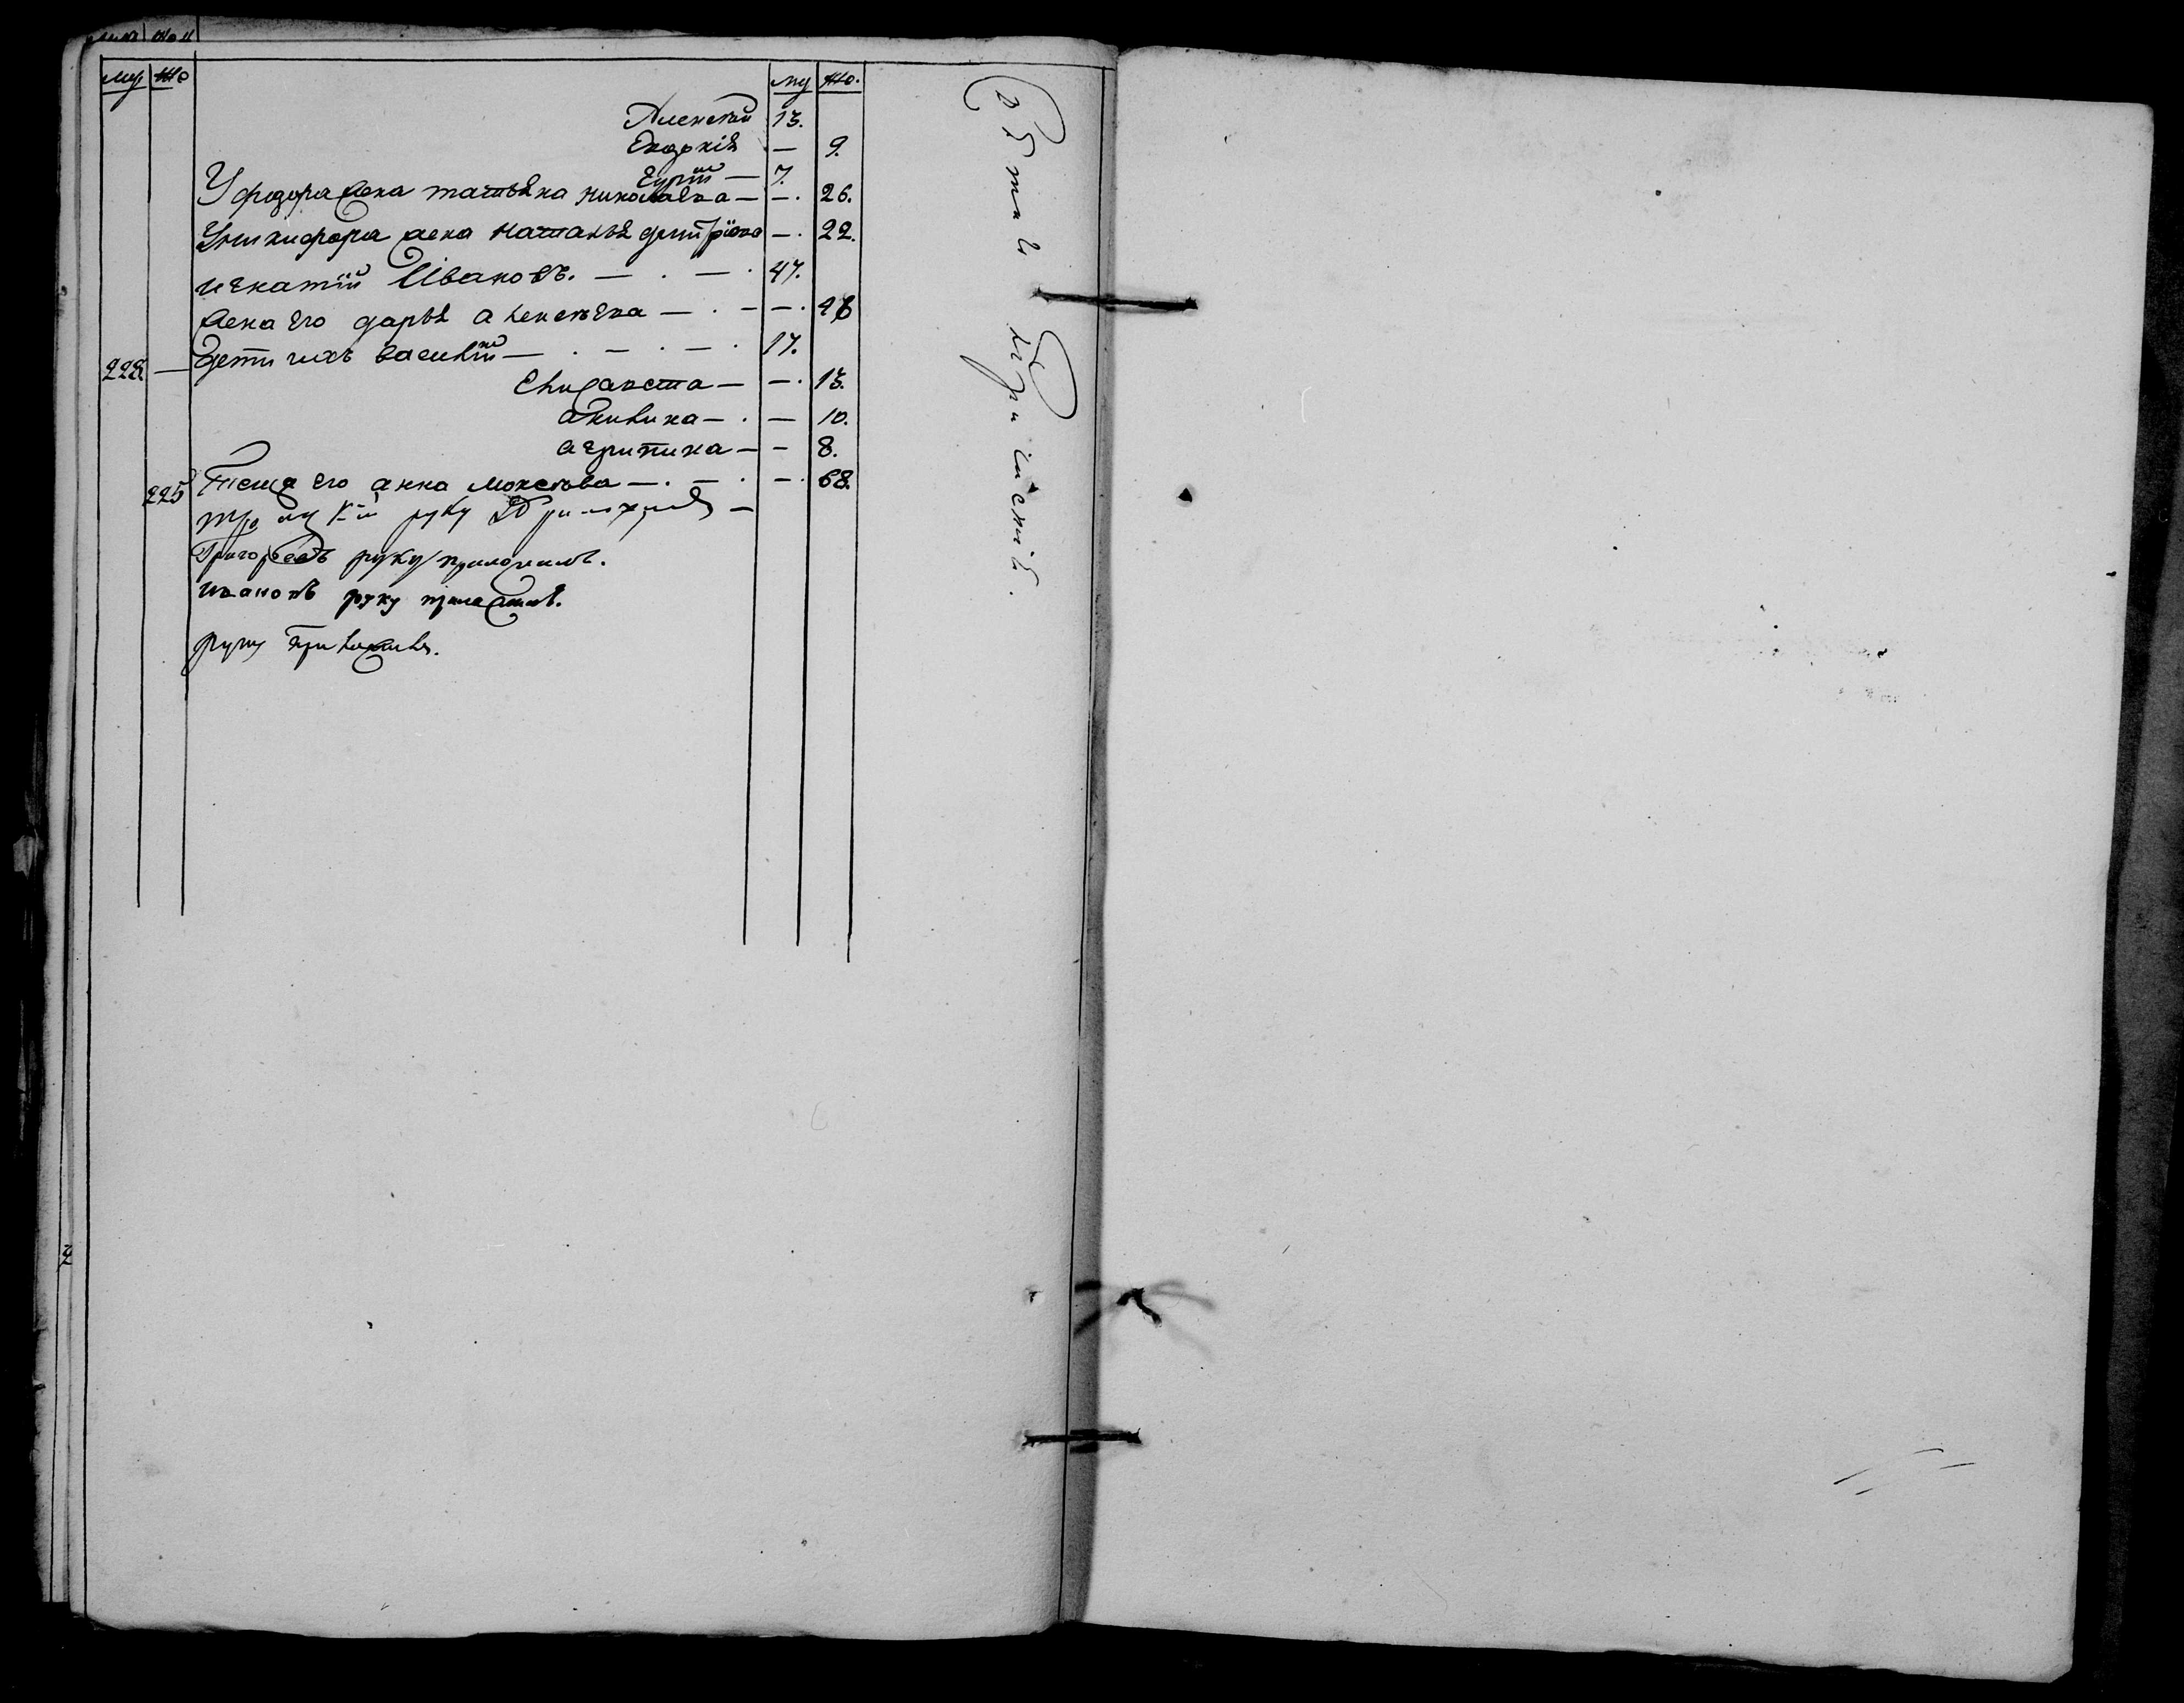 му жо му жо.
Алексей 13.
Евдокія — 9.
Гурій — 7.
У федора жена татьяна николаева — —. 26.
Уникифора жена наталья дмитріева —. 22.
игнатій Ивановъ. — . — . 47.
жена его дарья алексеева — . — —. 48
228 — дети ихъ василій — . — . — . 17.
Елизавета — —. 13.
акилина — . — 10.
агрипина — — 8.
225 Теща его анна моисеева — . — . —. 68.
руку
Григорьевъ руку приложилъ.
ивановъ руку приложилъ.
руку приложилъ.